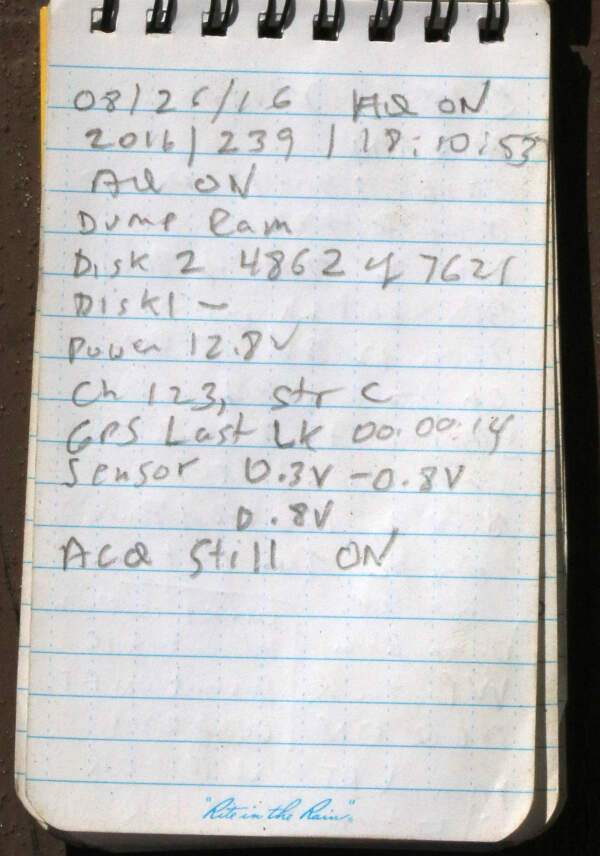 08/26/16 Acq ON
2016/239/18:10:53
Acq ON
Dump Ram
Disk 2 4862 of 7621
Disk1 -
Power 12.8V
Ch 123, Str C
GPS Last Lk 00:00:14
Sensor 0.3V -0.8V
0.8V
ACQ Still ON
"Rite in the Rain".